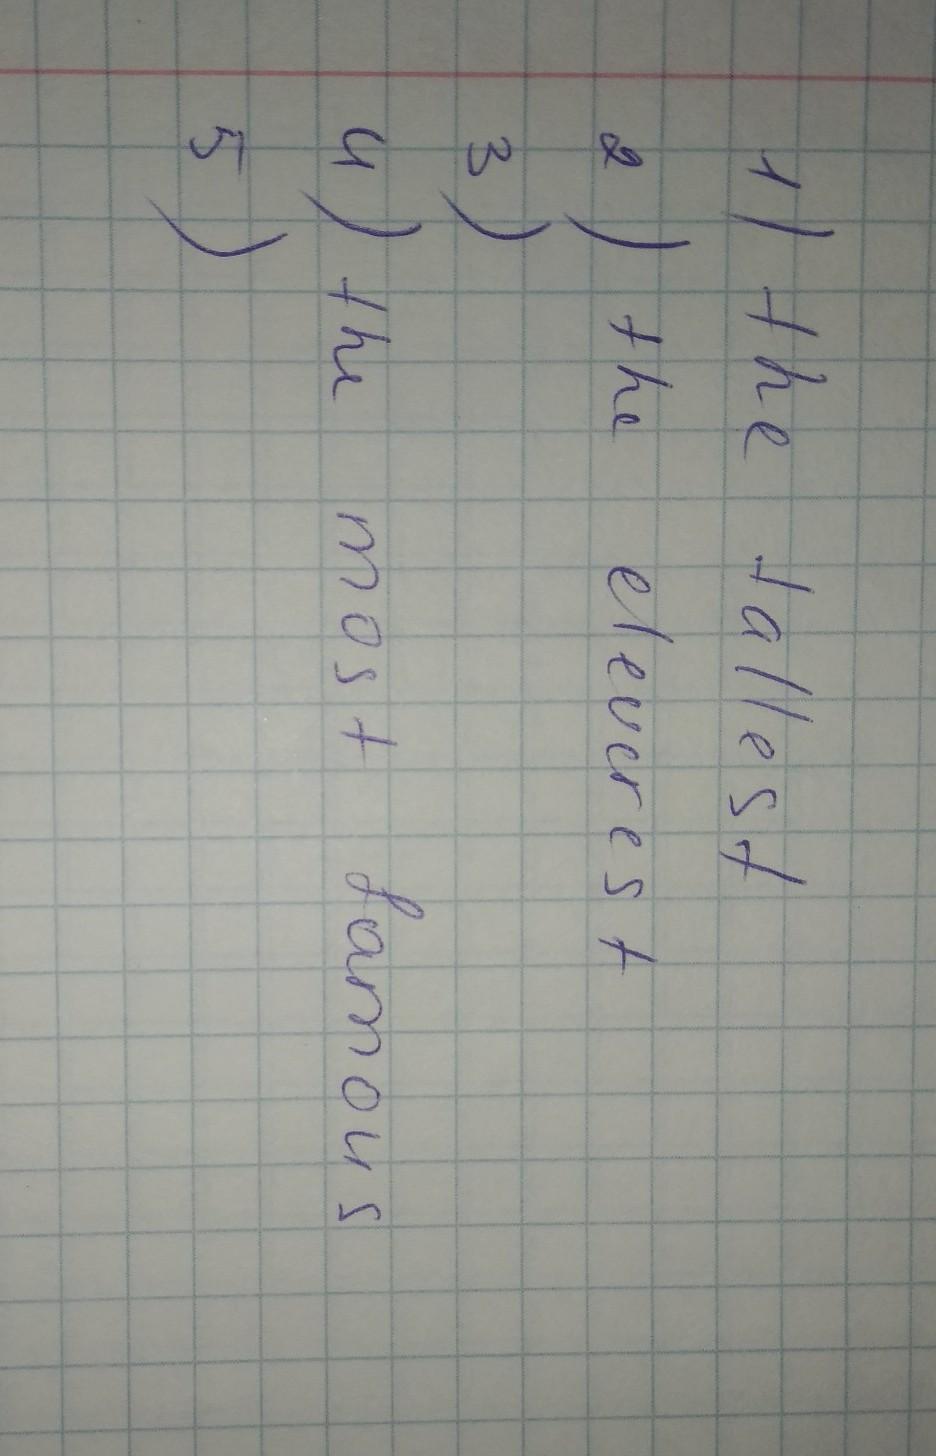 1) the tallest
2) the eleverest
3)
4) the most famous
5)